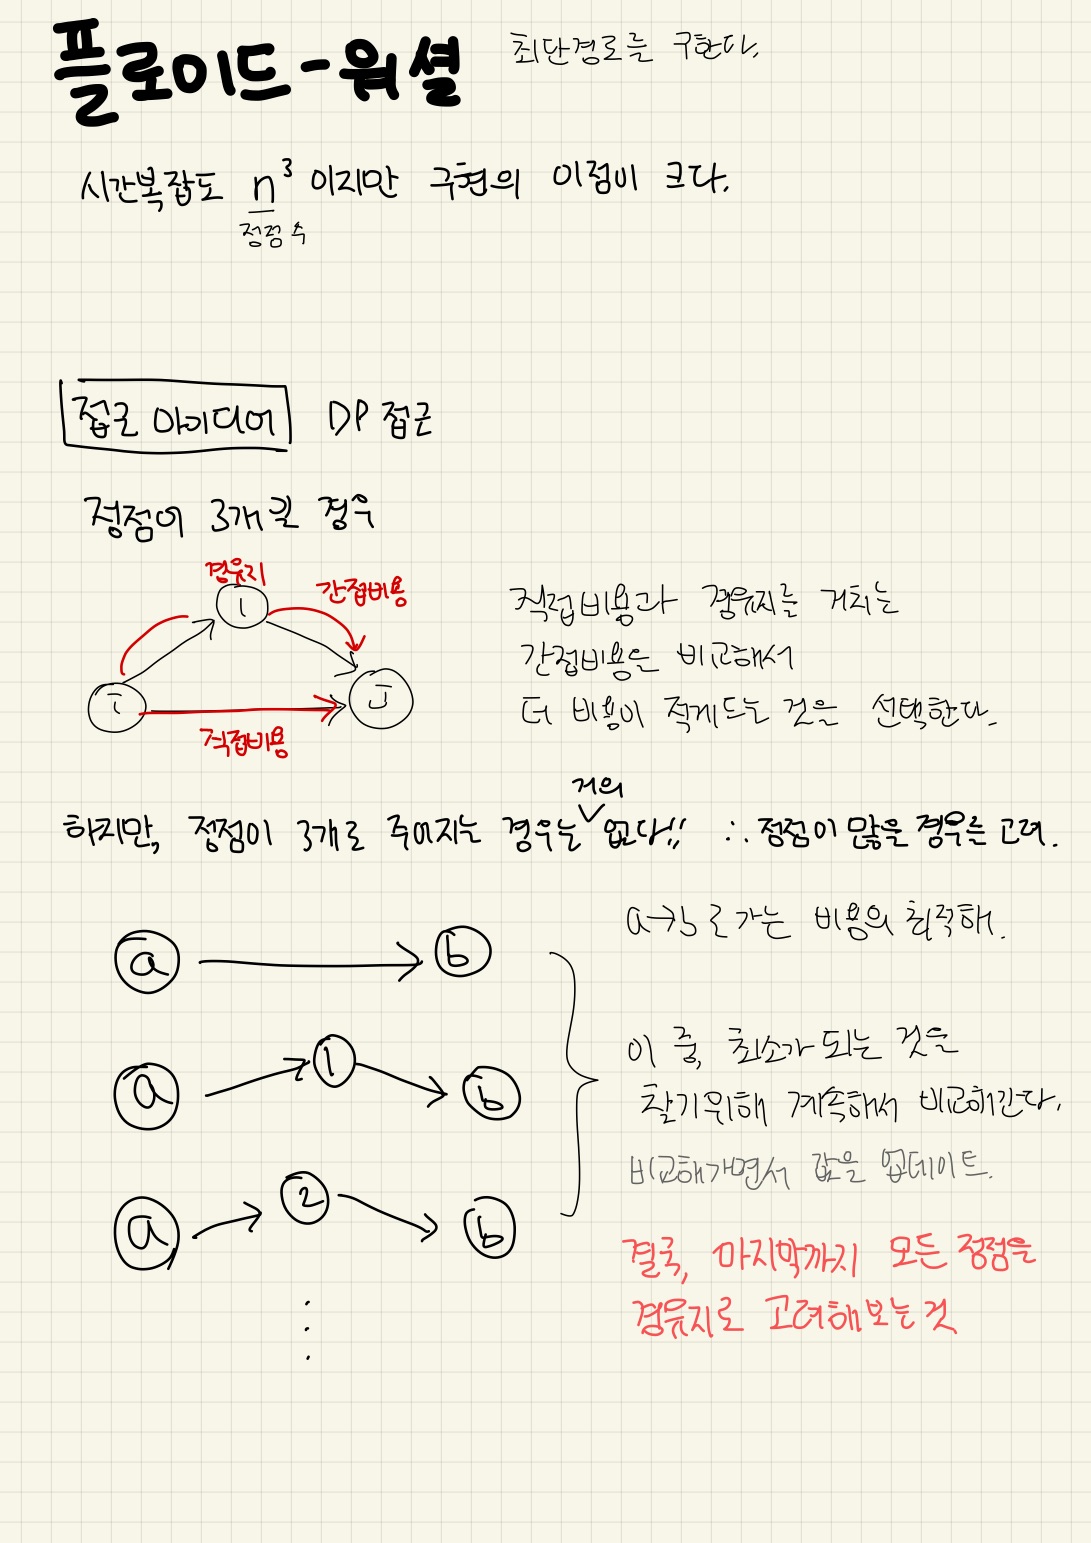 플로이드-워셜 최단경로를 구한다.
시간복잡도 n³ 이지만 구현의 이점이 크다.
정점 수
접근 아이디어 DP 접근
정점이 3개일 경우
경유지
1
간접비용
i
j
직접비용
직접비용과 경유지를 거치는
간접비용을 비교해서
더 비용이 적게드는 것을 선택한다.
거의
하지만, 정점이 3개로 주어지는 경우는 없다!! ∴ 정점이 많을 경우를 고려.
a → b
a→b로 가는 비용의 최적해.
a → 1 → b
이 중, 최소가 되는 것을
찾기위해 계속해서 비교해간다.
비교해가면서 값을 업데이트.
a → 2 → b
결국, 마지막까지 모든 정점을
경유지로 고려해보는 것